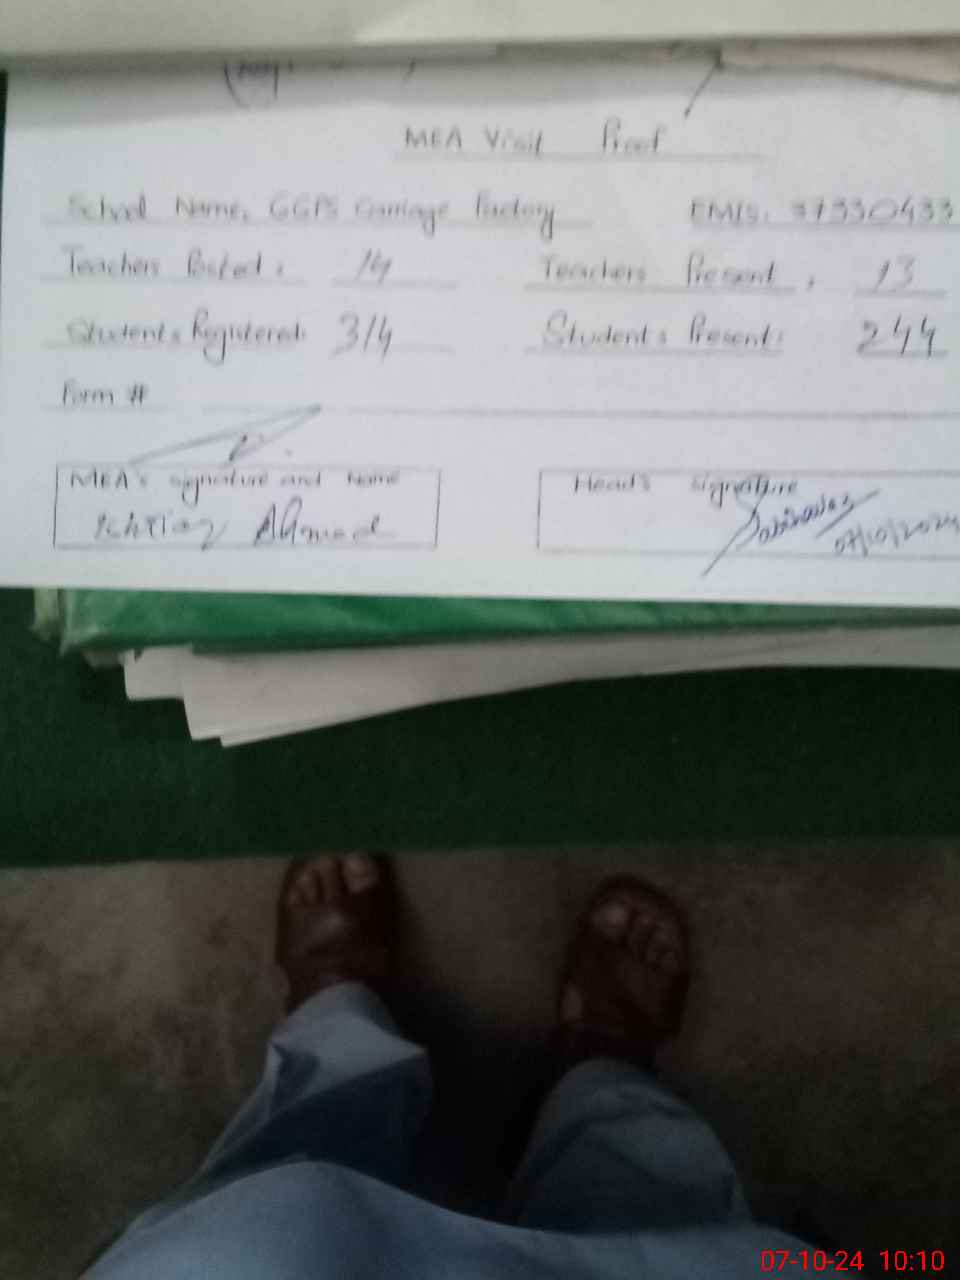 MEA Visit Proof
School Name, GGPS Carriage Factory EMIS. 37330433
Teachers Posted: 14 Teachers Present: 13
Students Registered: 314 Students Present: 244
Form #
MEA's signature and Name Head's signature
Ishtiaq Ahmad
07/10/2024
07-10-24 10:10